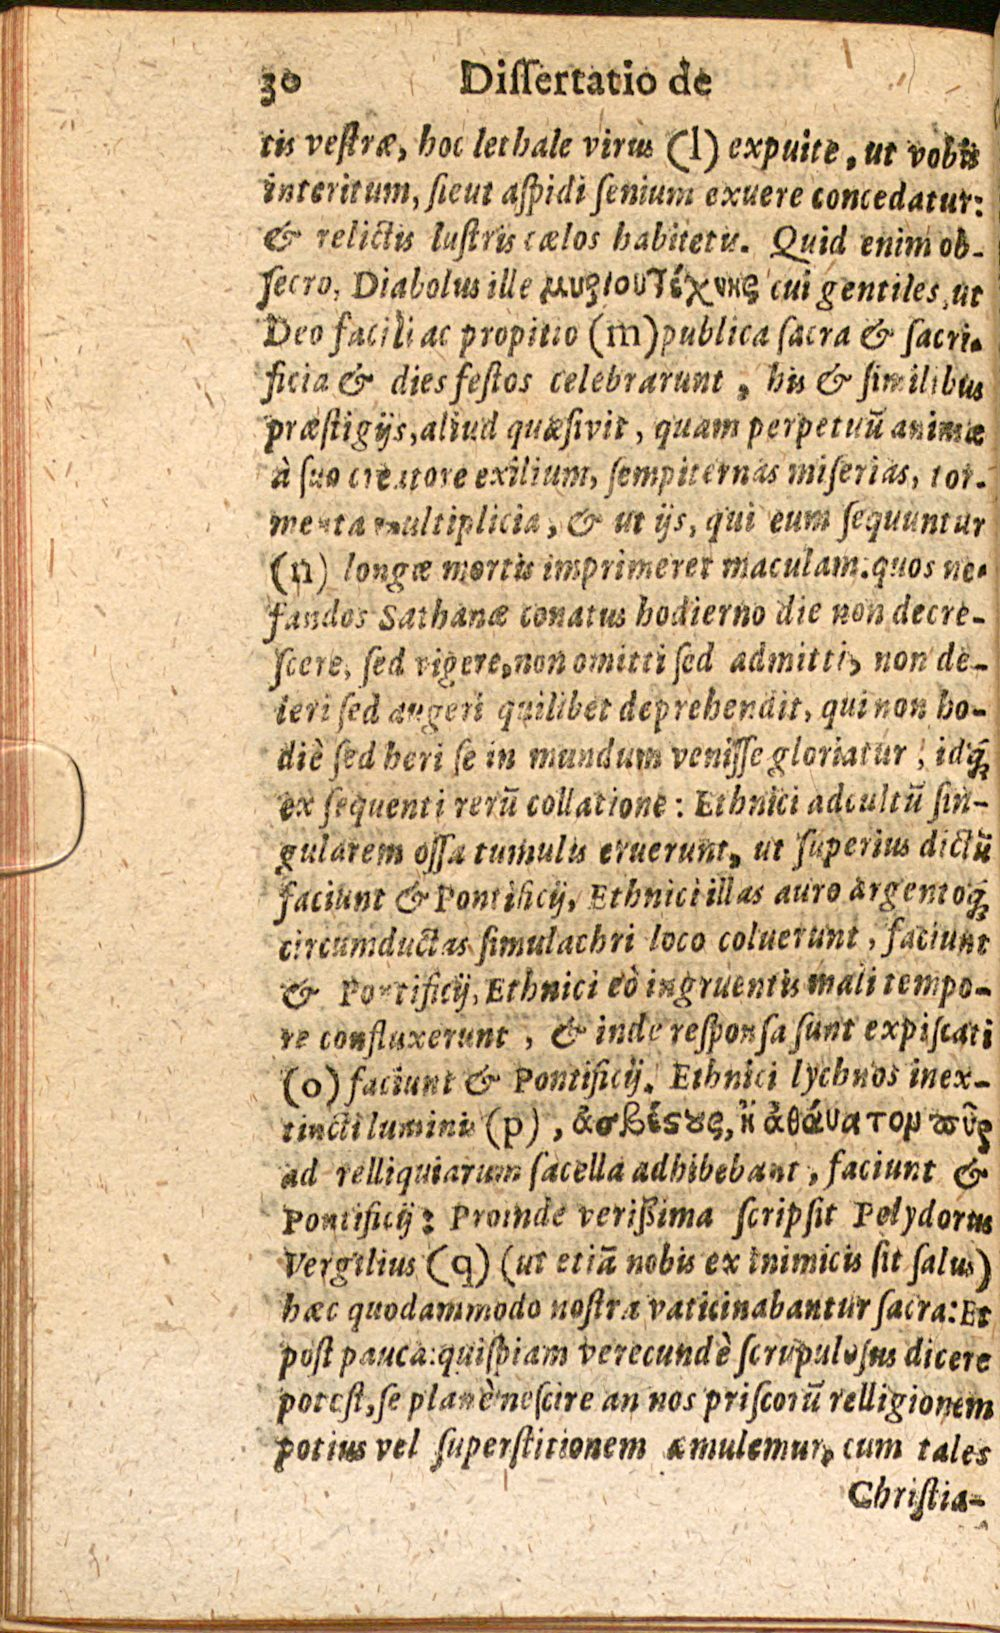 30 Dissertatio de
tis vestræ, hoc lethale virus (l) expuite, ut vobis
interitum, sicut aspidi senium exuere concedatur:
& relictis lustris cælos habitetis. Quid enim ob-
secro, Diabolus ille μυριουτέχνης cui gentiles, ut
Deo facili ac propitio (m) publica sacra & sacri-
ficia & dies festos celebrarunt, his & similibus
præstigijs, aliud quæsivit, quam perpetuū animæ
à suo creatore exilium, sempiternas miserias, tor-
menta multiplicia, & ut ijs, qui eum sequuntur
(n) longæ mortis imprimeret maculam: quos ne-
fandos Sathanæ conatus hodierno die non decre-
scere, sed vigere, non omitti sed admitti, non de-
ieri sed augeri quilibet deprehendit, qui non ho-
diè sed heri se in mundum venisse gloriatur, idq́;
ex sequenti rerū collatione: Ethnici ad cultū sin-
gularem ossa tumulis eruerunt, ut superius dictū
faciunt & Pontificij, Ethnici illas auro argentoq́;
circumductas simulachri loco coluerunt, faciunt
& Pontificij, Ethnici eò ingruentis mali tempo-
re confluxerunt, & inde responsa sunt expiscati
(o) faciunt & Pontificij. Ethnici lychnos inex-
tincti luminis (p), ἀσβέςȣς, ἢ ἀθάνατον πῦρ
ad relliquiarum sacella adhibebant, faciunt &
Pontificij: Proinde verißima scripsit Polydorus
Vergilius (q) (ut etiā nobis ex inimicis sit salus)
hæc quodammodo nostra vaticinabantur sacra: Et
post pauca: quispiam verecundè scrupulosus dicere
potest, se planè nescire an nos priscorū relligionem
potius vel superstitionem æmulemur, cum tales
Christia-